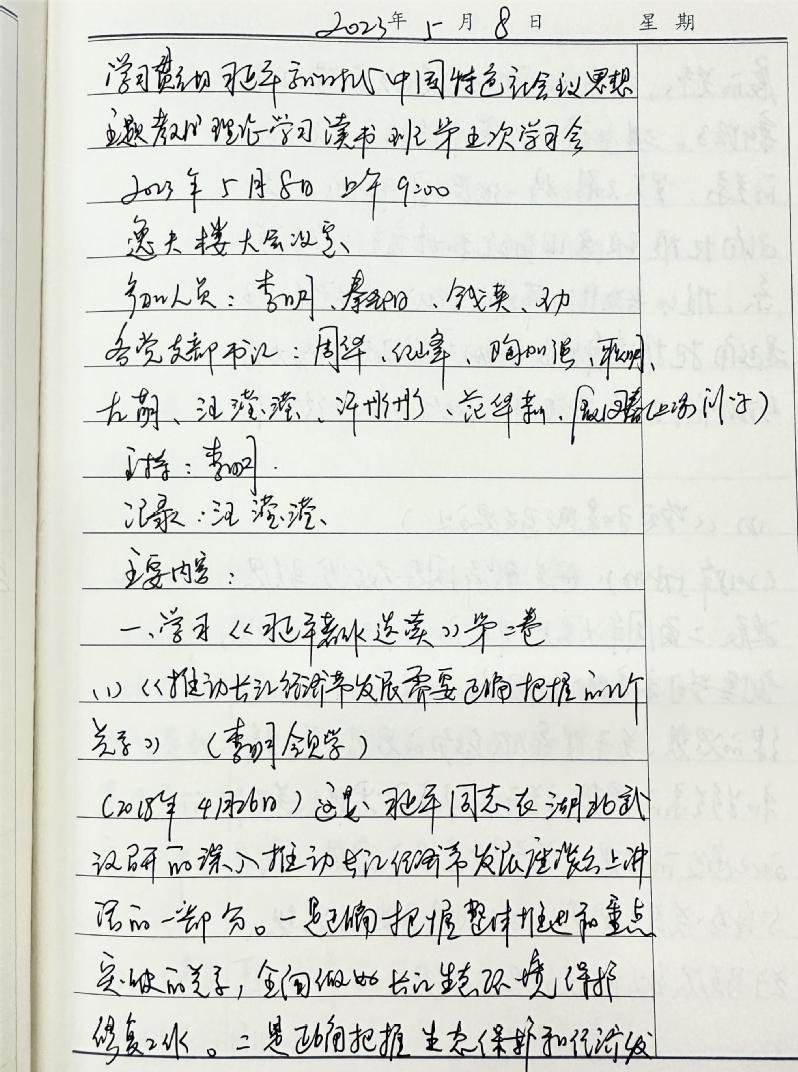 2023年 5月 8日 星期
学习贯彻习近平新时代中国特色社会主义思想
主题教育理论学习读书班第五次学习会
2023年5月8日 上午9:00
逸夫楼大会议室、
参加人员：李明、秦、钱英、
各党支部书记：周华、纪峰、陶加强、耿明、
左萌、汪滢滢、许彤彤、范华新、
主持：李明.
记录：汪滢滢、
主要内容：
一、学习《习近平著作选读》第二卷
(1)《推动长江经济带发展需要正确把握的几个
关系》（李明领学）
（2018年4月26日）这是、习近平同志在湖北武
汉召开的深入推动长江经济带发展座谈会上讲
话的一部分。一是正确把握整体推进和重点
突破的关系，全面做好长江生态环境保护
修复工作。二是正确把握生态保护和经济发